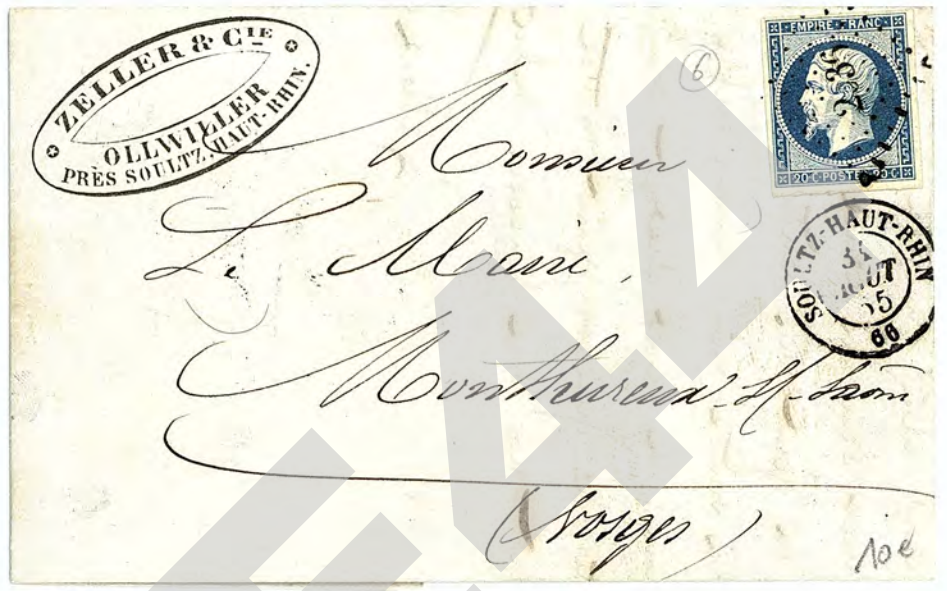 ZELLER & CIE
OLLWILLER
PRÈS SOULTZ. HAUT-RHIN.
6
EMPIRE FRANC
20 C POSTE 20 C
SOULTZ-HAUT-RHIN
31
AOUT
55
66
Monsieur
Le Maire,
Monthureux s/-Saône
(Vosges)
10 €